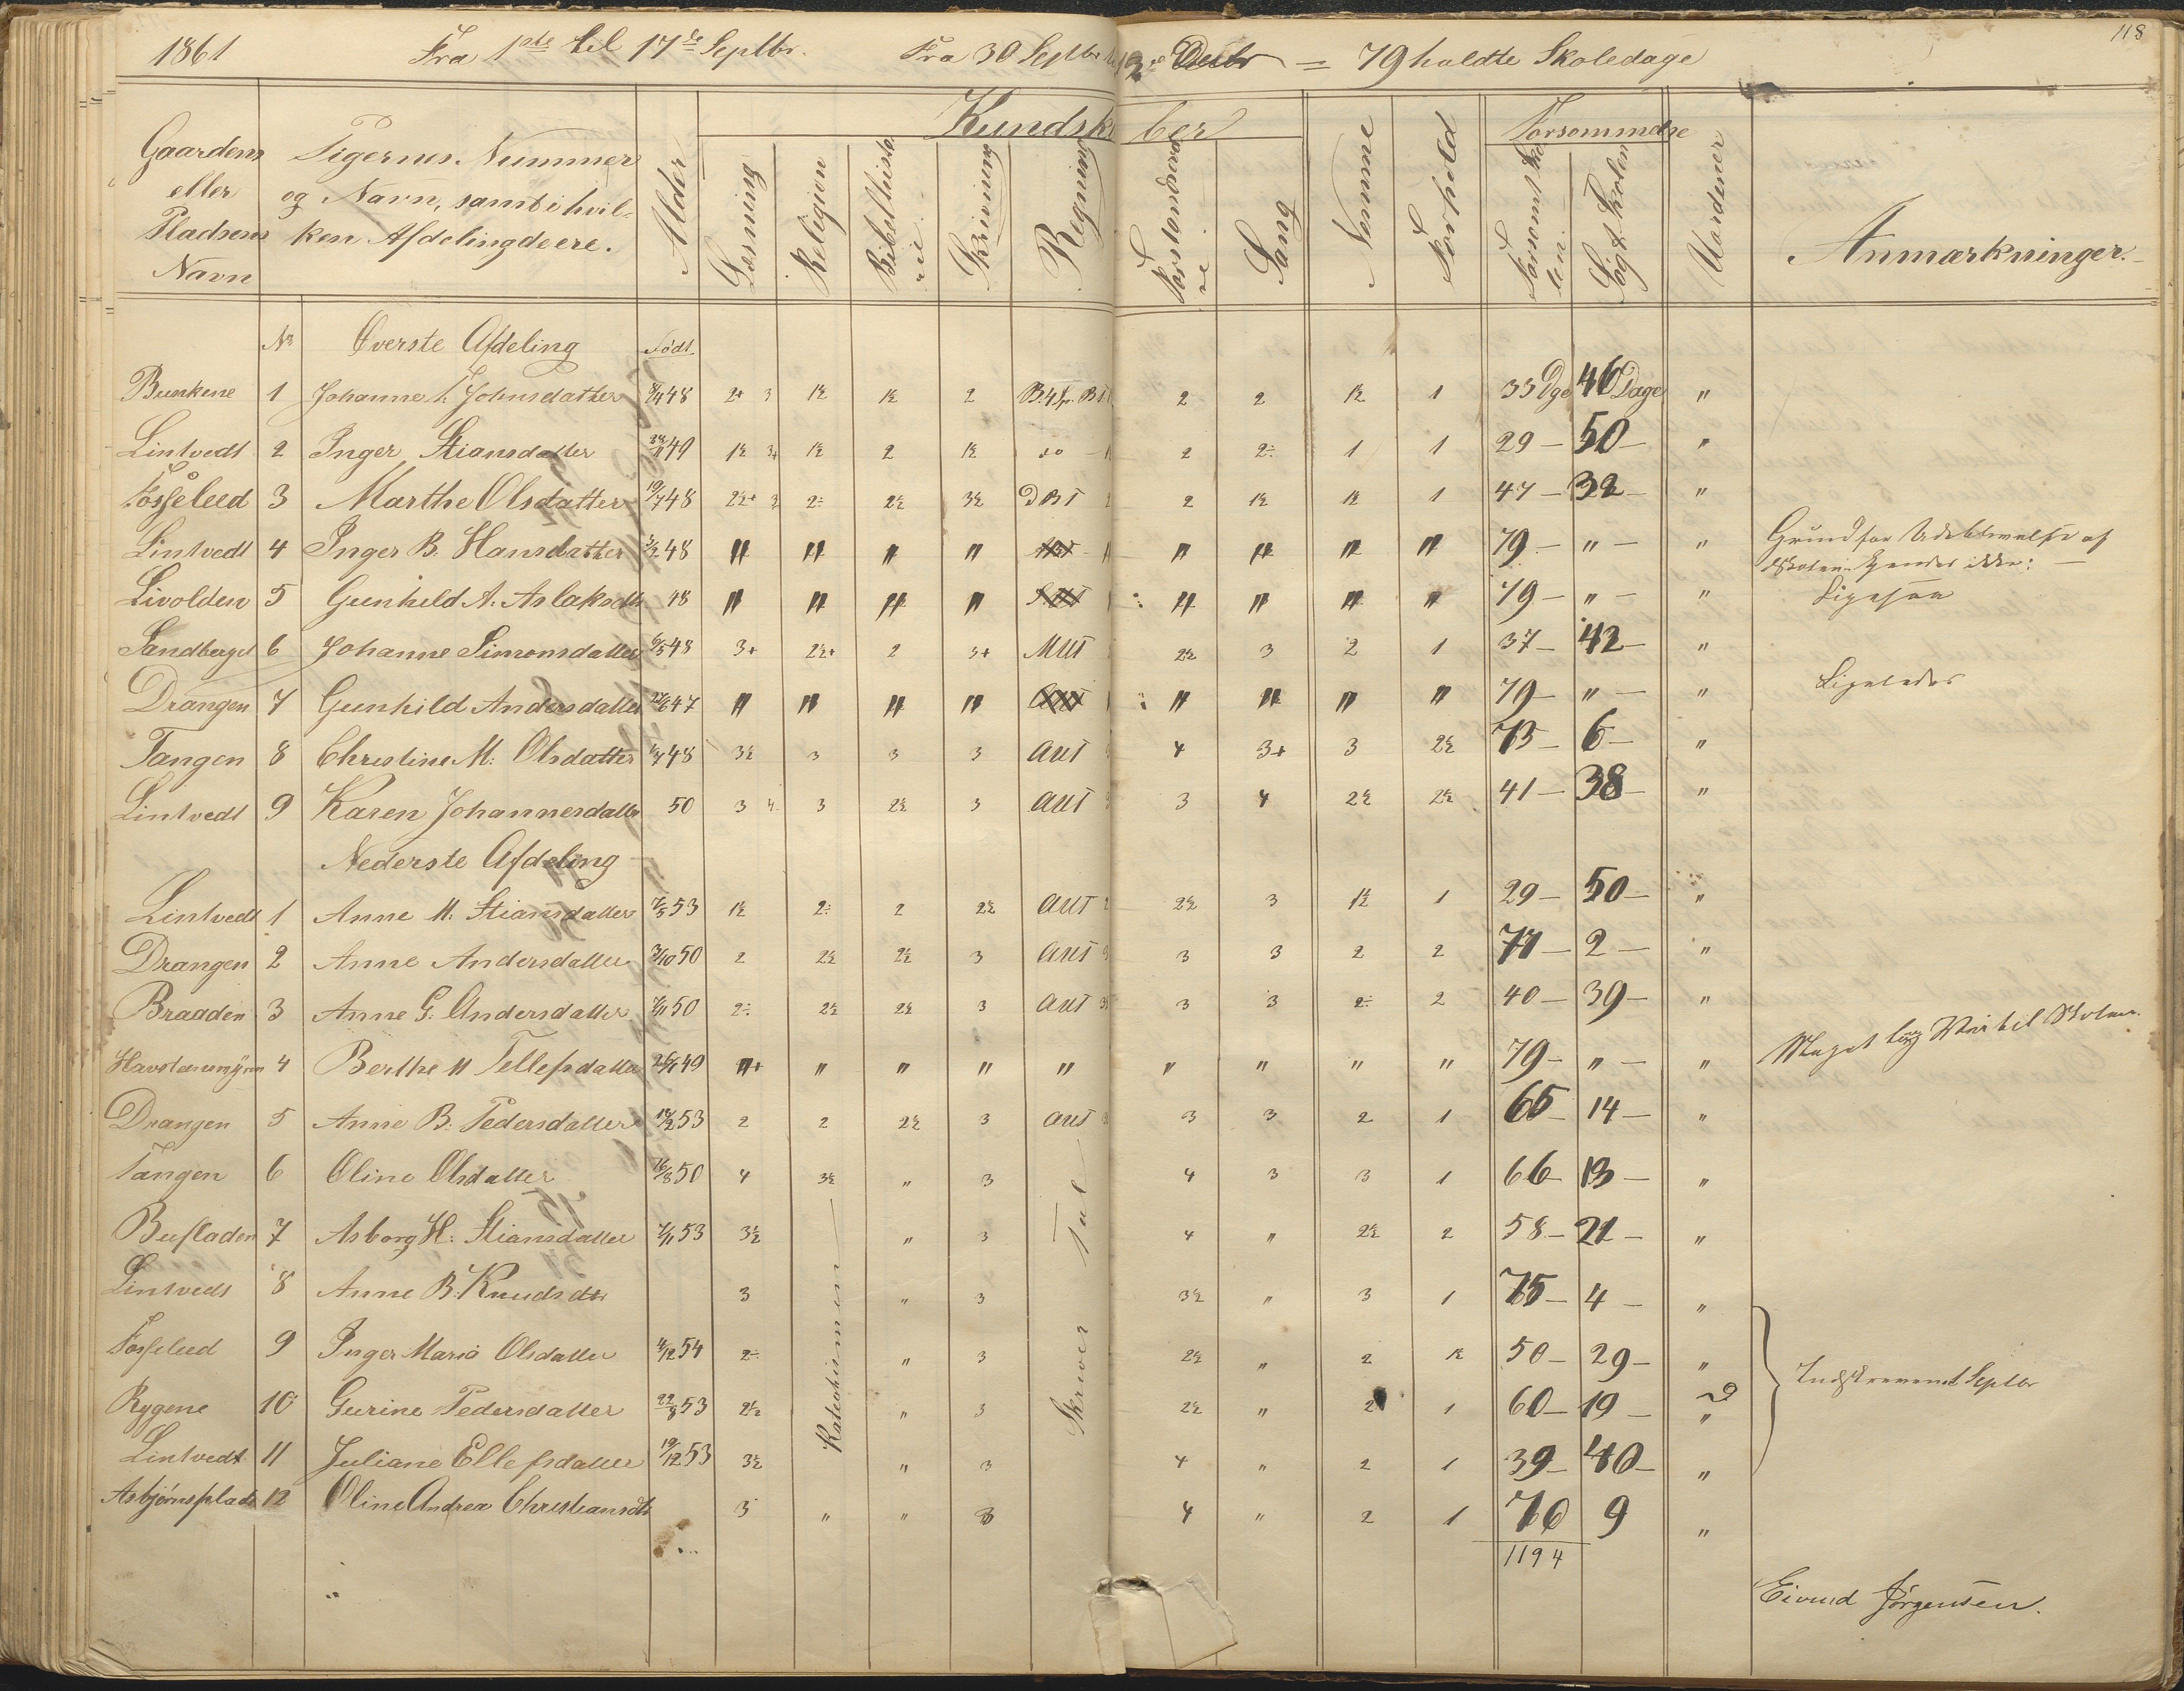 118
1861 Fra 1ste til 17de Septbr. Fra 30 Septbr = 79 holdte Skoledage
Gaardens eller Pladsens Navn
Pigernes Nummer og Navn, samt i hvilken Afdeling de ere.
Alder
Kundskaber
Læsning Religion Bibelhistorie Skrivning Regning Forstandsøvelse Sang
Nemme Forhold
Forsømmelse
Forsømt Skolen. Søgt Skolen
Uordener
Anmærkninger.
No Øverste Afdeling Født
Bunkene 1 Johanne T. Johnsdatter 48 2+ 3 1½ 1½ 2 2 2 1½ 1 33 Dge 46 Dage "
Lintvedt 2 Inger Stiansdatter 49 1½ 3+ 1½ 2 1½ do 2 2÷ 1 1 29 - 50 - "
Fosseleed 3 Marthe Olsdatter 19/7 48 2½+ 3 2÷ 2½ 3½ DBT 2 1½ 1½ 1 47 - 32 - "
Lintvedt 4 Inger B. Hansdatter 48 " " " " " " " " 79 - " - " Grund for Udeblivelse af Skolen kjendes ikke:
Livolden 5 Gunhild A. Aslaksdtr 48 " " " " " " " " 79 - " - " Ligesaa
Sandberget 6 Johanne Simonsdatter 48 3+ 2½+ 2 3+ MUT 2½ 3 2 1 37 - 42 - "
Drangen 7 Gunhild Andersdatter 47 " " " " " " " " 79 - " - " Ligeledes
Tangen 8 Christine M. Olsdatter 48 3½ 3 3 3 AUT 4 3+ 3 2½ 73 - 6 - "
Lintvedt 9 Karen Johannesdatter 50 3 4 3 2½ 3 AUT 3 4 2½ 2½ 41 - 38 - "
Nederste Afdeling
Lintvedt 1 Anne M. Stiansdatter 7/5 53 1½ 2÷ 2 2½ AUT 2½ 3 1½ 1 29 - 50 - "
Drangen 2 Anne Andersdatter 3/10 50 2 2½ 2½ 3 AUT 3 3 2 2 77 - 2 - "
Braaden 3 Anne G. Andersdatter 7/11 50 2÷ 2½ 2½ 3 AUT 3 3 2÷ 2 40 - 39 - "
4 Berthe M Tellefsdatter 49 " " " " " " " " " 79 - " - " Meget lang Vei til Skolen.
Drangen 5 Anne B. Pedersdatter 53 2 2 2½ 3 AUT 3 3 2 1 65 - 14 - "
Tangen 6 Oline Olsdatter 16/8 50 4 3½ " 3 4 3 3 1 66 - 13 - "
Bufladen 7 Asborg H. Stiansdatter 7/11 53 3½ " 3 4 " 2½ 2 58 - 21 - "
Lintvedt 8 Anne B. Knudsdtr 3 " 3 3½ " 3 1 75 - 4 - "
Fosseleed 9 Inger Maria Olsdatter 54 2÷ " 3 2½ " 2 1½ 50 - 29 - "
Rygene 10 Gurine Pedersdatter 22/8 53 2½ " 3 2½ " 2 1 60 - 19 - "
Lintvedt 11 Juliane Ellefsdatter 19/12 53 3½ " 3 4 " 2 1 39 - 40 - "
Asbjørnsplads 12 Oline Andrea Christiansdtr 5 " " 3 4 " 2 1 70 9 "
Katechismen
Skriver Tal
Indskrevne Septbr
1194
Eivind Jørgensen.